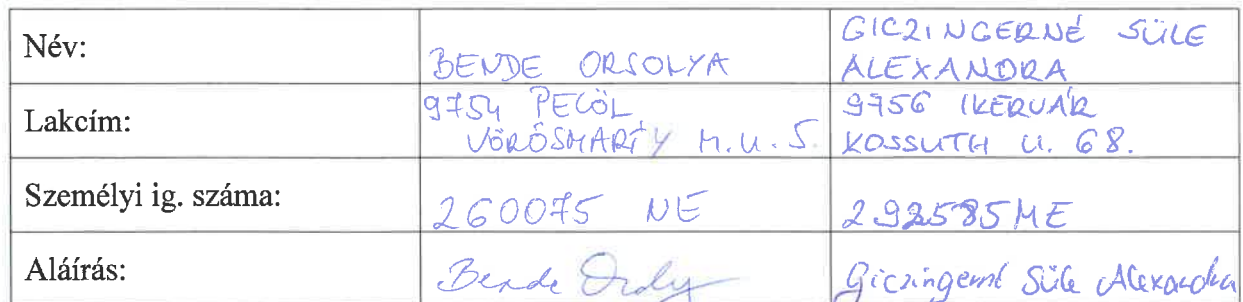 Név:
BENDE ORSOLYA
GICZINGERNÉ SÜLE
ALEXANDRA
Lakcím:
9754 PECÖL
VÖRÖSMARTY M. U. 5.
9756 IKERVÁR
KOSSUTH U. 68.
Személyi ig. száma:
260075 NE
292585ME
Aláírás:
Bende Orsolya
Giczingerné Süle Alexandra